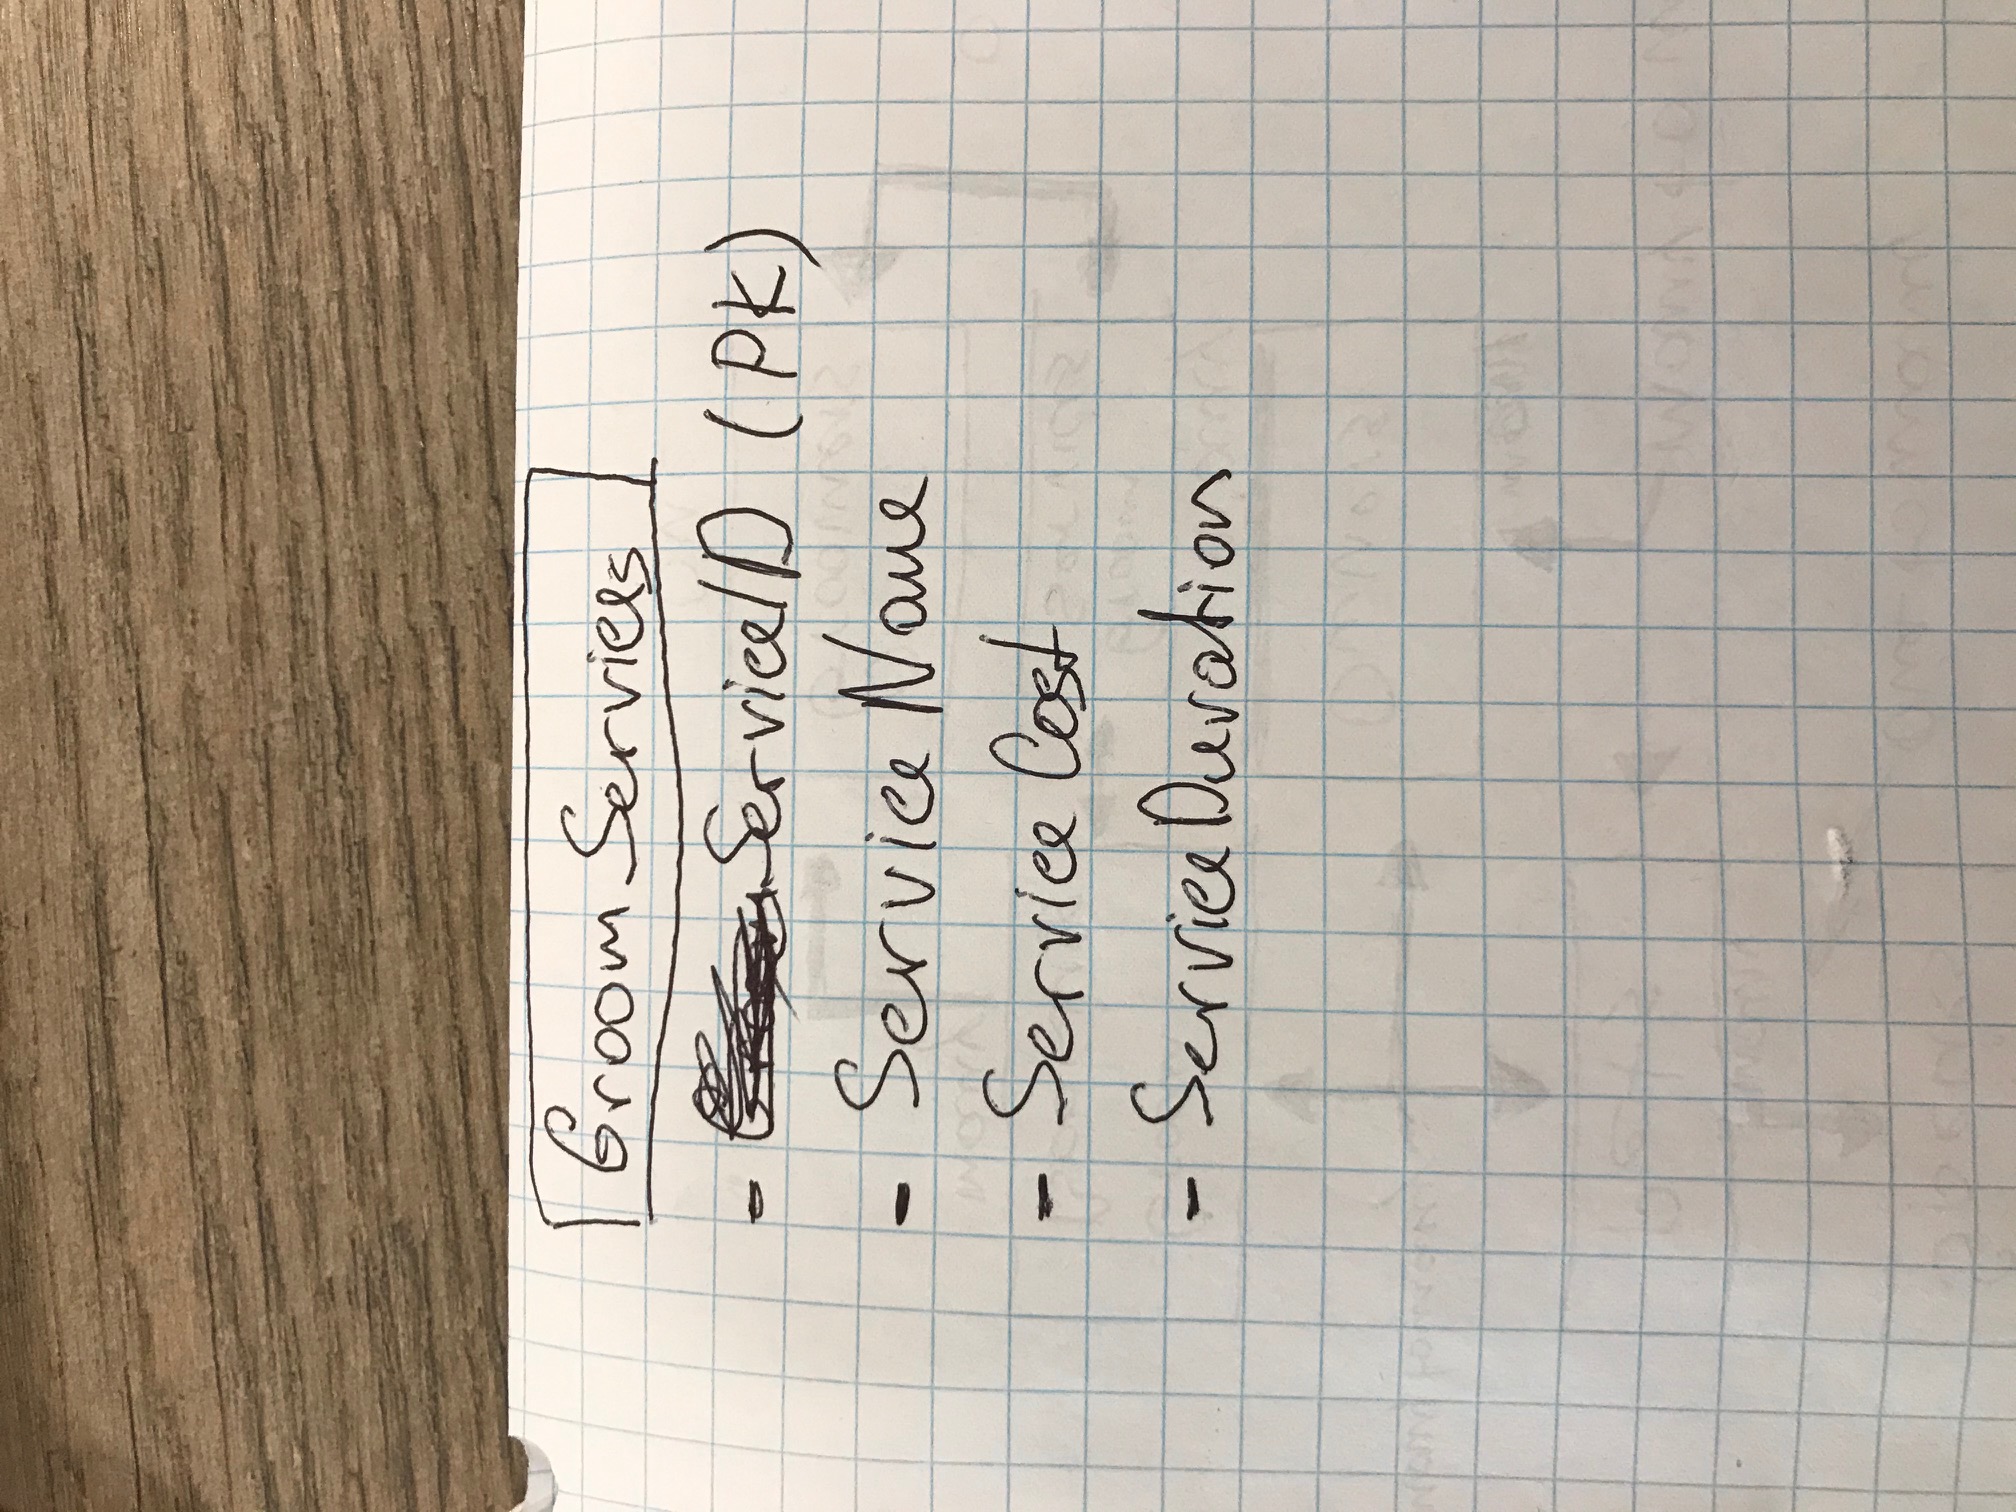 Groom Services
- ServiceID (PK)
- Service Name
- Service Cost
- Service Duration